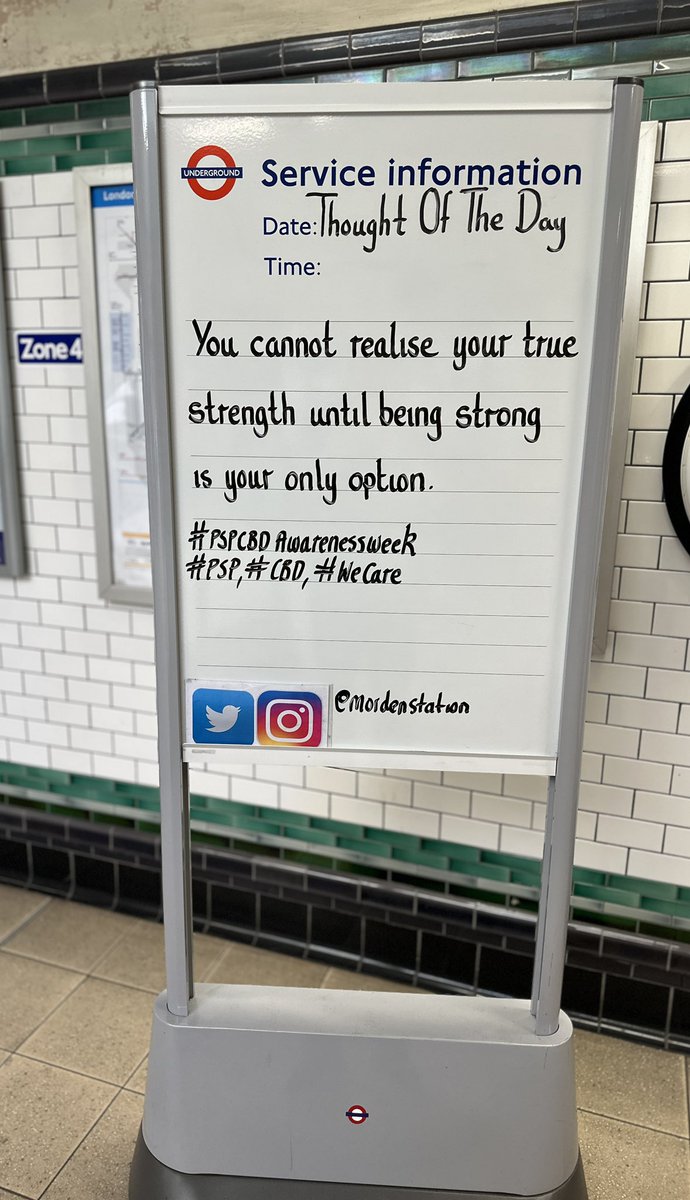 London
UNDERGROUND
Service information
Date: Thought Of The Day
Time:
Zone 4
You cannot realise your true
strength until being strong
is your only option.
#PSPCBD Awarenessweek
#PSP, #CBD, #WeCare
@mordenstation